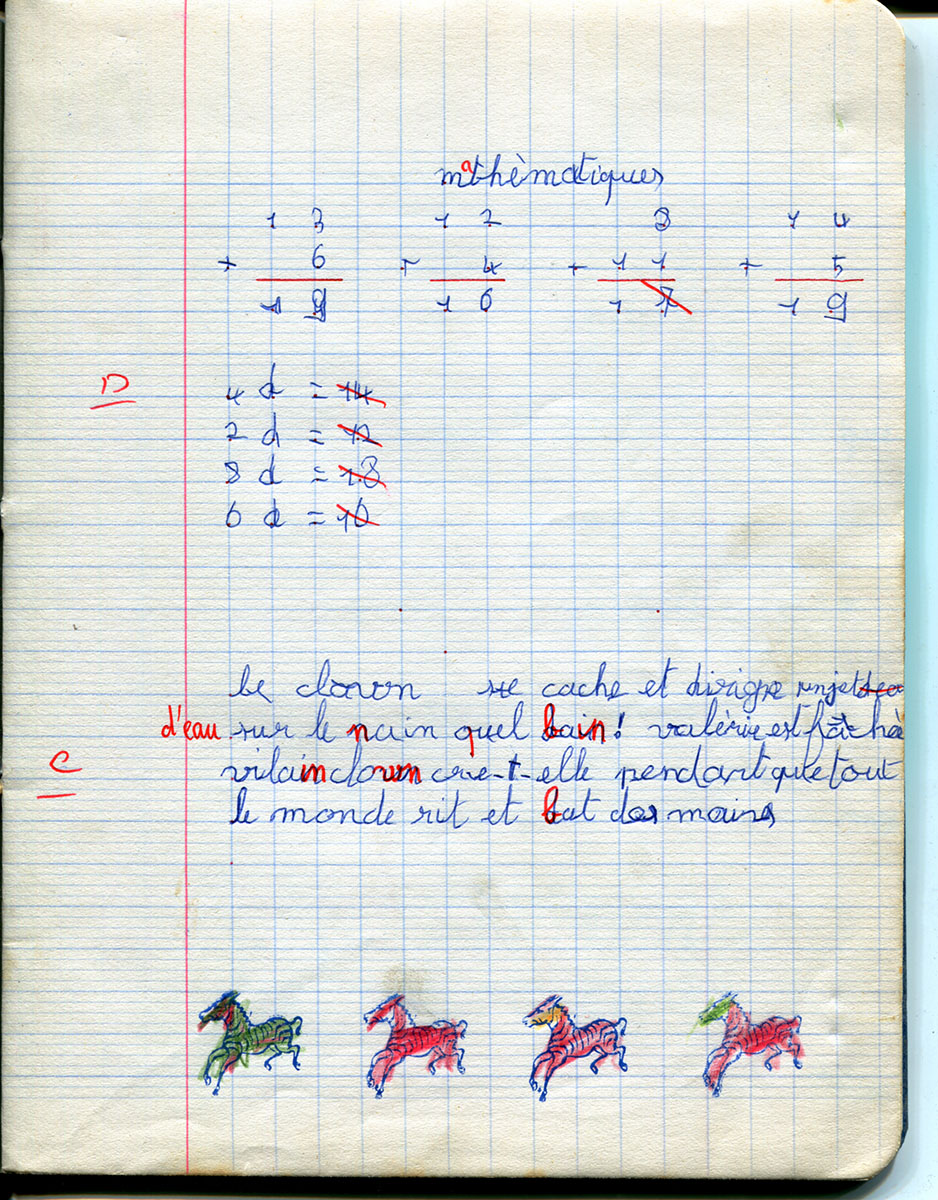 mathèmatiques
1 3 1 2 3 1 4
+ 6 + 4 + 1 1 + 5
1 9 1 6 1 7 1 9
D
4 d = 14
2 d = 12
8 d = 18
6 d = 16
le clown se cache et dirige un jet
d'eau sur le nain quel bain! valèrie est fâchè
C
vilain clown crie-t-elle pendant que tout
le monde rit et bat des mains